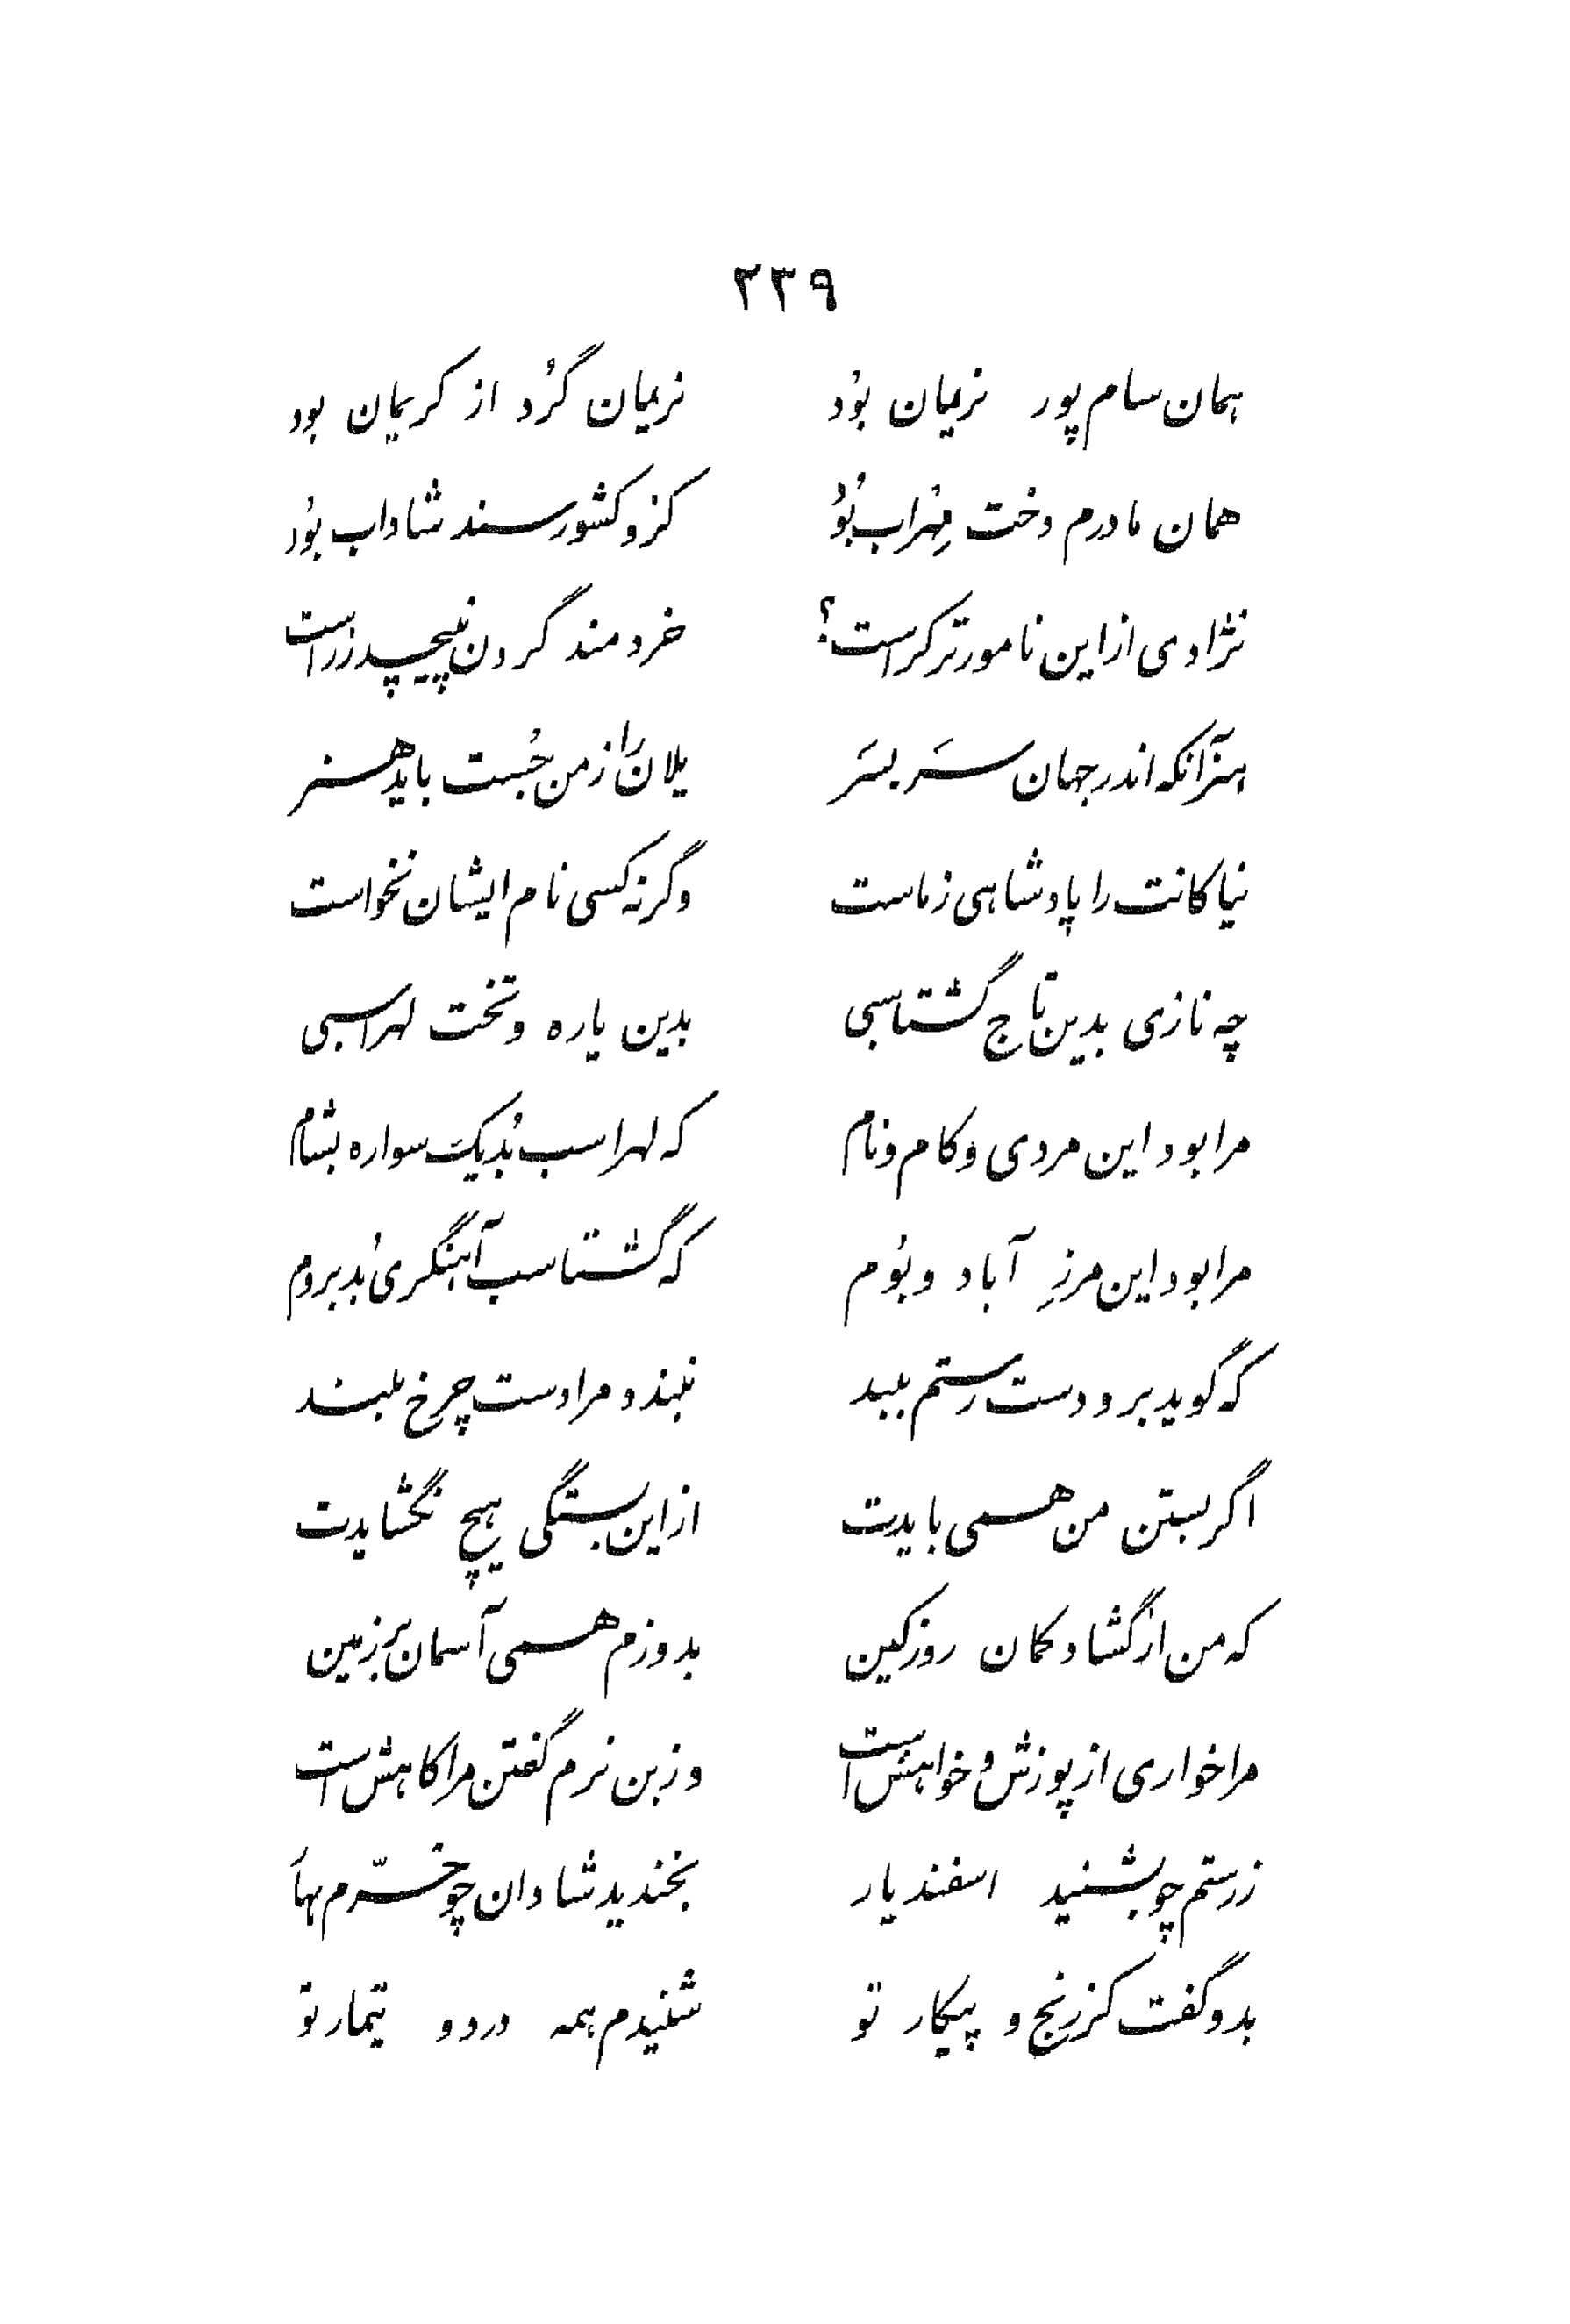 ۲۳۹
همان سام پور نریمان بُود نریمان گُرد از کریمان بود
همان مادرم دخت مِهراب بُوُد کز و کشور سند شاداب بُود
نژادی از این نامورتر کراست؟ خردمند گردن نپیچد ز راست
هنر آنکه اندر جهان سَر بسَر یلان را ز من جُست باید هنر
نیاکانت را پادشاهی ز ماست وگرنه کسی نام ایشان نخواست
چه نازی بدین تاج گشتاسبی بدین یاره و تخت لهراسبی
مرا بود این مردی و کام و نام که لهراسب بُد یک سواره بشام
مرا بود این مرزِ آباد و بُوم که گشتاسب آهنگری بُد بروم
که گوید برو دست رستم ببند نبندد مرا دست چرخ بلند
اگر بستن من همی بایدت از این بستگی هیچ نگشایدت
که من از گشاد کمان روز کین بدوزم همی آسمان بر زمین
مرا خواری از پوزش و خواهش است وزین نرم گفتن مرا کاهش است
ز رستم چو بشنید اسفندیار بخندید شادان چو خرّم بهار
بدو گفت کز رنج و پیکار تو شنیدم همه درد و تیمار تو